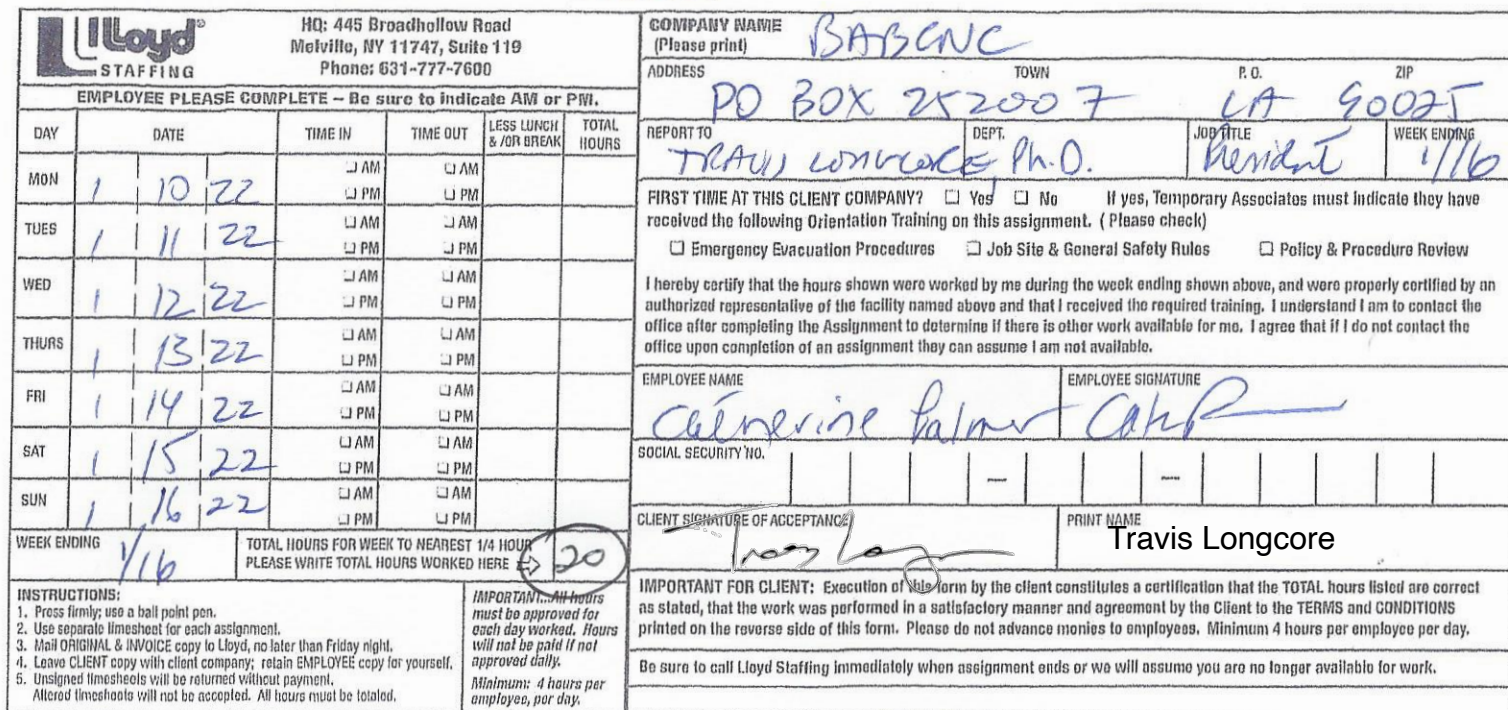 Lloyd®
STAFFING
HQ: 445 Broadhollow Road
Melville, NY 11747, Suite 119
Phone: 631-777-7600
EMPLOYEE PLEASE COMPLETE – Be sure to indicate AM or PM.
DAY DATE TIME IN TIME OUT LESS LUNCH & /OR BREAK TOTAL HOURS
MON 1 10 22 AM AM
PM PM
TUES 1 11 22 AM AM
PM PM
WED 1 12 22 AM AM
PM PM
THURS 1 13 22 AM AM
PM PM
FRI 1 14 22 AM AM
PM PM
SAT 1 15 22 AM AM
PM PM
SUN 1 16 22 AM AM
PM PM
WEEK ENDING 1/16
TOTAL HOURS FOR WEEK TO NEAREST 1/4 HOUR
PLEASE WRITE TOTAL HOURS WORKED HERE 20
INSTRUCTIONS:
1. Press firmly; use a ball point pen.
2. Use separate timesheet for each assignment.
3. Mail ORIGINAL & INVOICE copy to Lloyd, no later than Friday night.
4. Leave CLIENT copy with client company; retain EMPLOYEE copy for yourself.
5. Unsigned timesheets will be returned without payment.
Altered timesheets will not be accepted. All hours must be totaled.
IMPORTANT...All hours
must be approved for
each day worked. Hours
will not be paid if not
approved daily.
Minimum: 4 hours per
employee, per day.
COMPANY NAME
(Please print) BABCNC
ADDRESS TOWN P. O. ZIP
PO BOX 252007 LA 90025
REPORT TO DEPT. JOB TITLE WEEK ENDING
TRAVIS LONGCORE, Ph.D. President 1/16
FIRST TIME AT THIS CLIENT COMPANY? Yes No If yes, Temporary Associates must indicate they have
received the following Orientation Training on this assignment. ( Please check)
Emergency Evacuation Procedures Job Site & General Safety Rules Policy & Procedure Review
I hereby certify that the hours shown were worked by me during the week ending shown above, and were properly certified by an
authorized representative of the facility named above and that I received the required training. I understand I am to contact the
office after completing the Assignment to determine if there is other work available for me. I agree that if I do not contact the
office upon completion of an assignment they can assume I am not available.
EMPLOYEE NAME EMPLOYEE SIGNATURE
Catherine Palmer
SOCIAL SECURITY NO.
CLIENT SIGNATURE OF ACCEPTANCE PRINT NAME
Travis Longcore
IMPORTANT FOR CLIENT: Execution of this form by the client constitutes a certification that the TOTAL hours listed are correct
as stated, that the work was performed in a satisfactory manner and agreement by the Client to the TERMS and CONDITIONS
printed on the reverse side of this form. Please do not advance monies to employees. Minimum 4 hours per employee per day.
Be sure to call Lloyd Staffing immediately when assignment ends or we will assume you are no longer available for work.